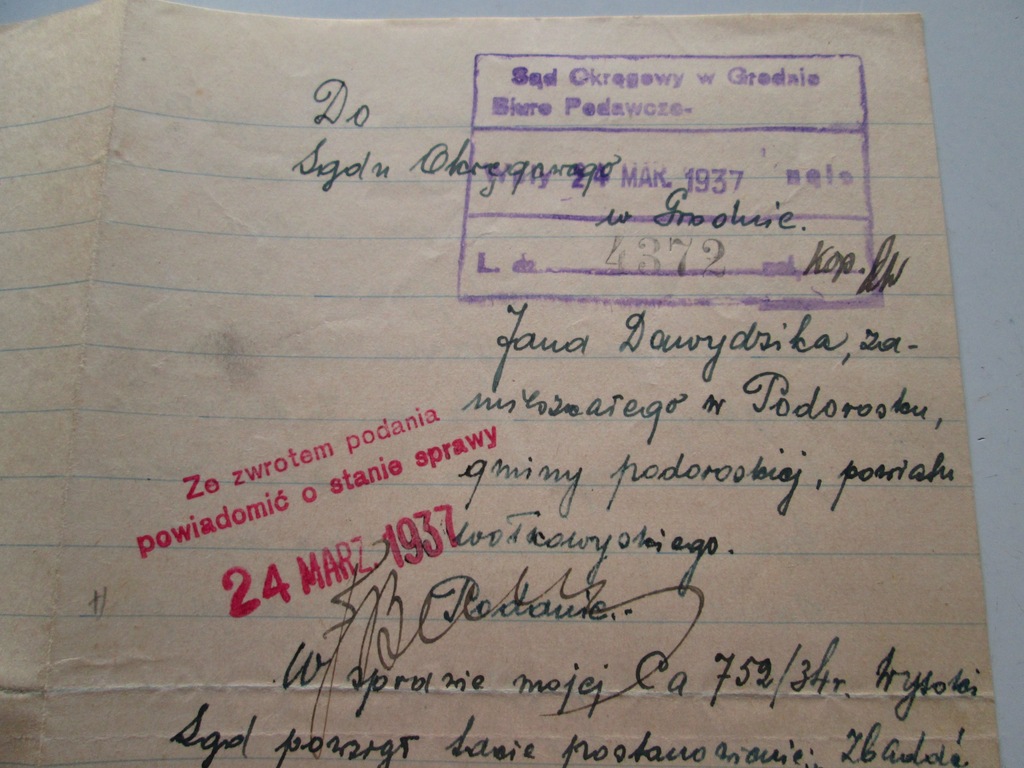 Sąd Okręgowy w Grodnie
Biuro Podawcze-
24 MAR. 1937
L. dz. 4372
Kop.
Do
Sądu Okręgowego
w Grodnie.
Jana Dawydzika, za-
mieszkałego w Podorosku,
gminy podoroskiej, powiatu
wołkowyskiego.
Ze zwrotem podania
powiadomić o stanie sprawy
24 MARZ. 1937
Podanie.-
W sprawie mojej Ca 752/34r. Wysoki
Sąd powziął takie postanowienie: Zbadać